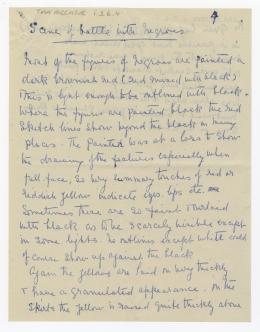 TAA ARCHIVE 1.2.6.4
4
Scene of battle with Negroes
Most of the figures of Negroes are painted a
dark brownish red (red mixed with black)
This is light enough to be outlined with black.
Where the figures are painted black the red
sketch lines show beyond the black in many
places. The painter was at a loss to show
the drawing of the features especially when
full face, so very summary touches of red or
reddish yellow indicate eyes, lips etc.
Sometimes these are so faint & overlaid
with black as to be scarcely visible except
in some lights. No outlines except white could
of course show up against the black
Again the yellows are laid on very thickly
& have a granulated appearance. On the
skirts the yellow is raised quite thickly above